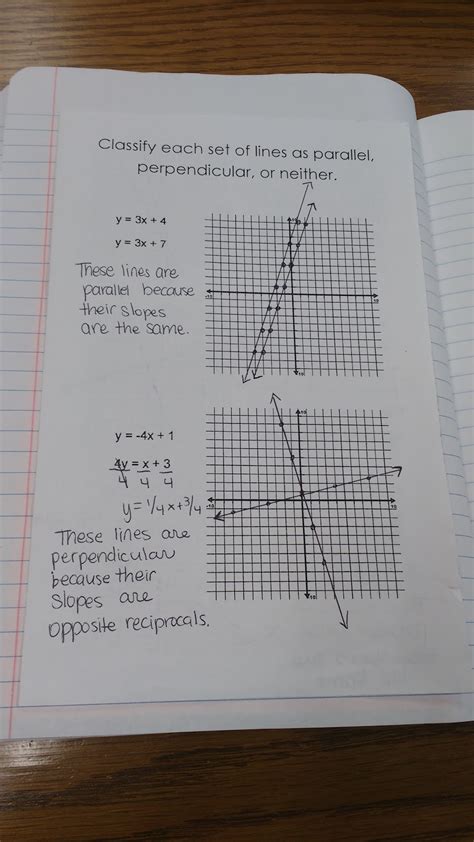 Classify each set of lines as parallel,
perpendicular, or neither.
y = 3x + 4
y = 3x + 7
These lines are
parallel because
their slopes
are the same.
-10
10
10
-10
y = -4x + 1
4y = x + 3
4 4 4
y = 1/4 x + 3/4
These lines are
perpendicular
because their
slopes are
opposite reciprocals.
-10
10
-10